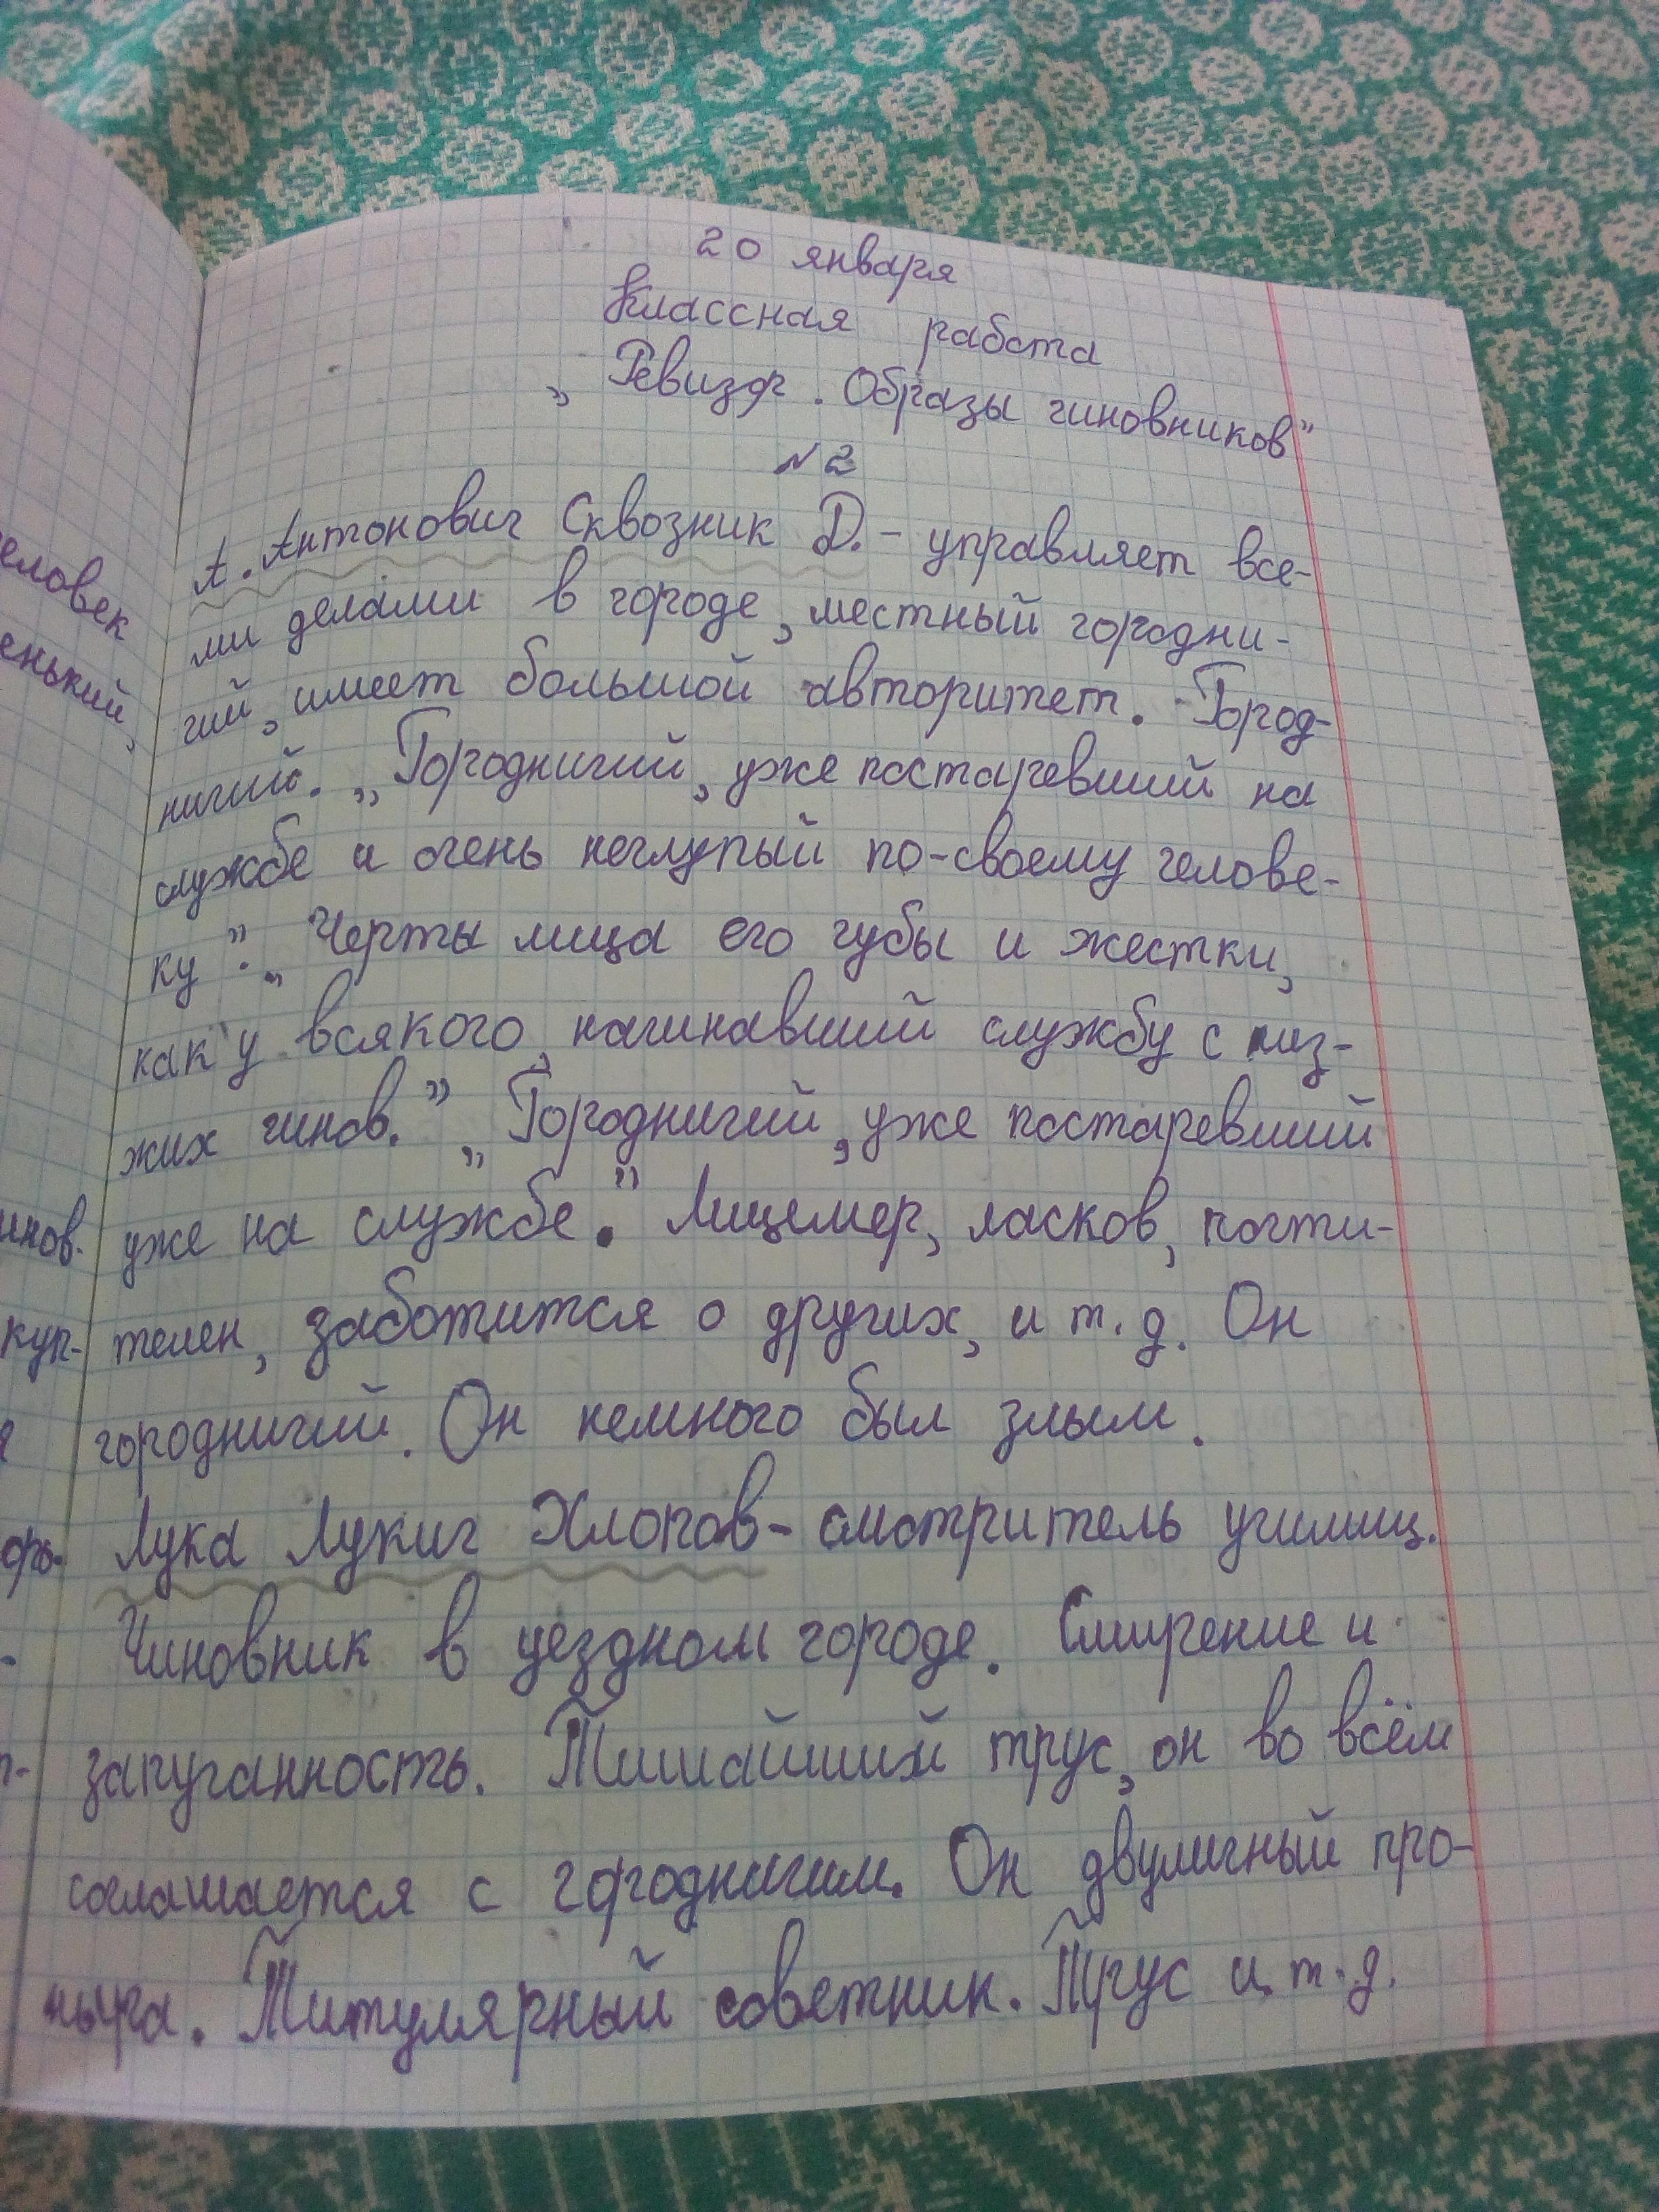 20 января
Классная работа
„Ревизор. Образы чиновников"
№2
А. Антонович Сквозник Д. - управляет все-
ми делами в городе, местный городни-
чий, имеет большой авторитет. Город-
ничий. „Городничий, уже постаревший на
службе и очень неглупый по-своему челове-
ку". „Черты лица его губы и жестки,
как у всякого, начинавший службу с низ-
жих чинов." „Городничий, уже постаревший
уже на службе." Лицемер, ласков, почти-
телен, заботится о других, и т. д. Он
городничий. Он немного был злым.
Лука Лукич Хлопов - смотритель училищ.
Чиновник в уездном городе. Смирение и
запуганность. Тишайший трус, он во всём
соглашается с городничим. Он двуличный про-
ныра. Титулярный советник. Трус и т. д.
еловек
енький,
инов.
куп-